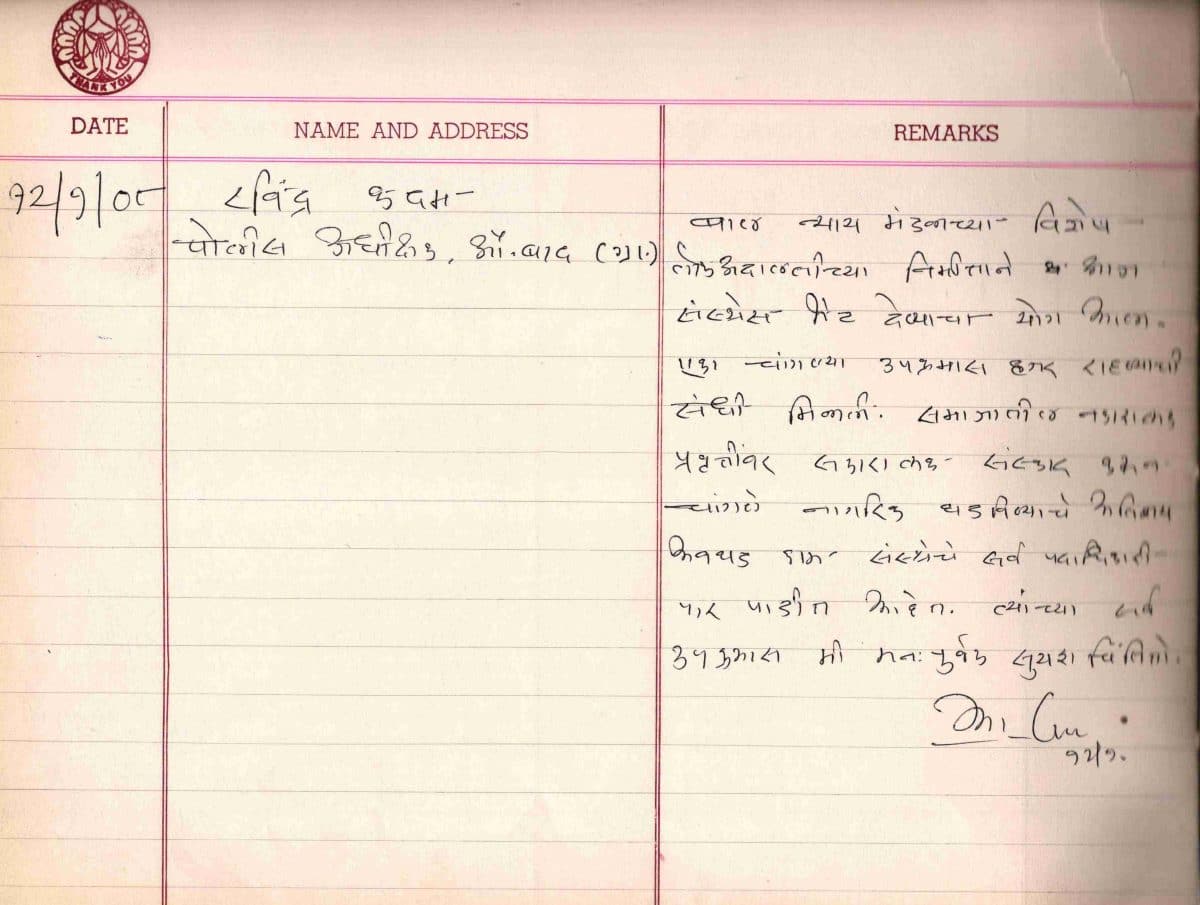 THANK YOU
DATE
NAME AND ADDRESS
REMARKS
१२/१/०८
रविंद्र कदम
पोलीस अधीक्षक, औ.बाद (ग्रा.)
बाल न्याय मंडळाच्या विशेष
लोकअदालतीच्या निमीत्ताने आज
संस्थेस भेट देण्याचा योग आला.
एका चांगल्या उपक्रमास हजर राहण्याची
संधी मिळाली. समाजातील नकारात्मक
प्रवृत्तींवर सकारात्मक संस्कार करून
चांगले नागरिक घडविण्याचे अतिशय
अवघड काम संस्थेचे सर्व पदाधिकारी
पार पाडीत आहेत. त्यांच्या सर्व
उपक्रमास मी मनःपुर्वक सुयश चिंतितो.
१२/१.